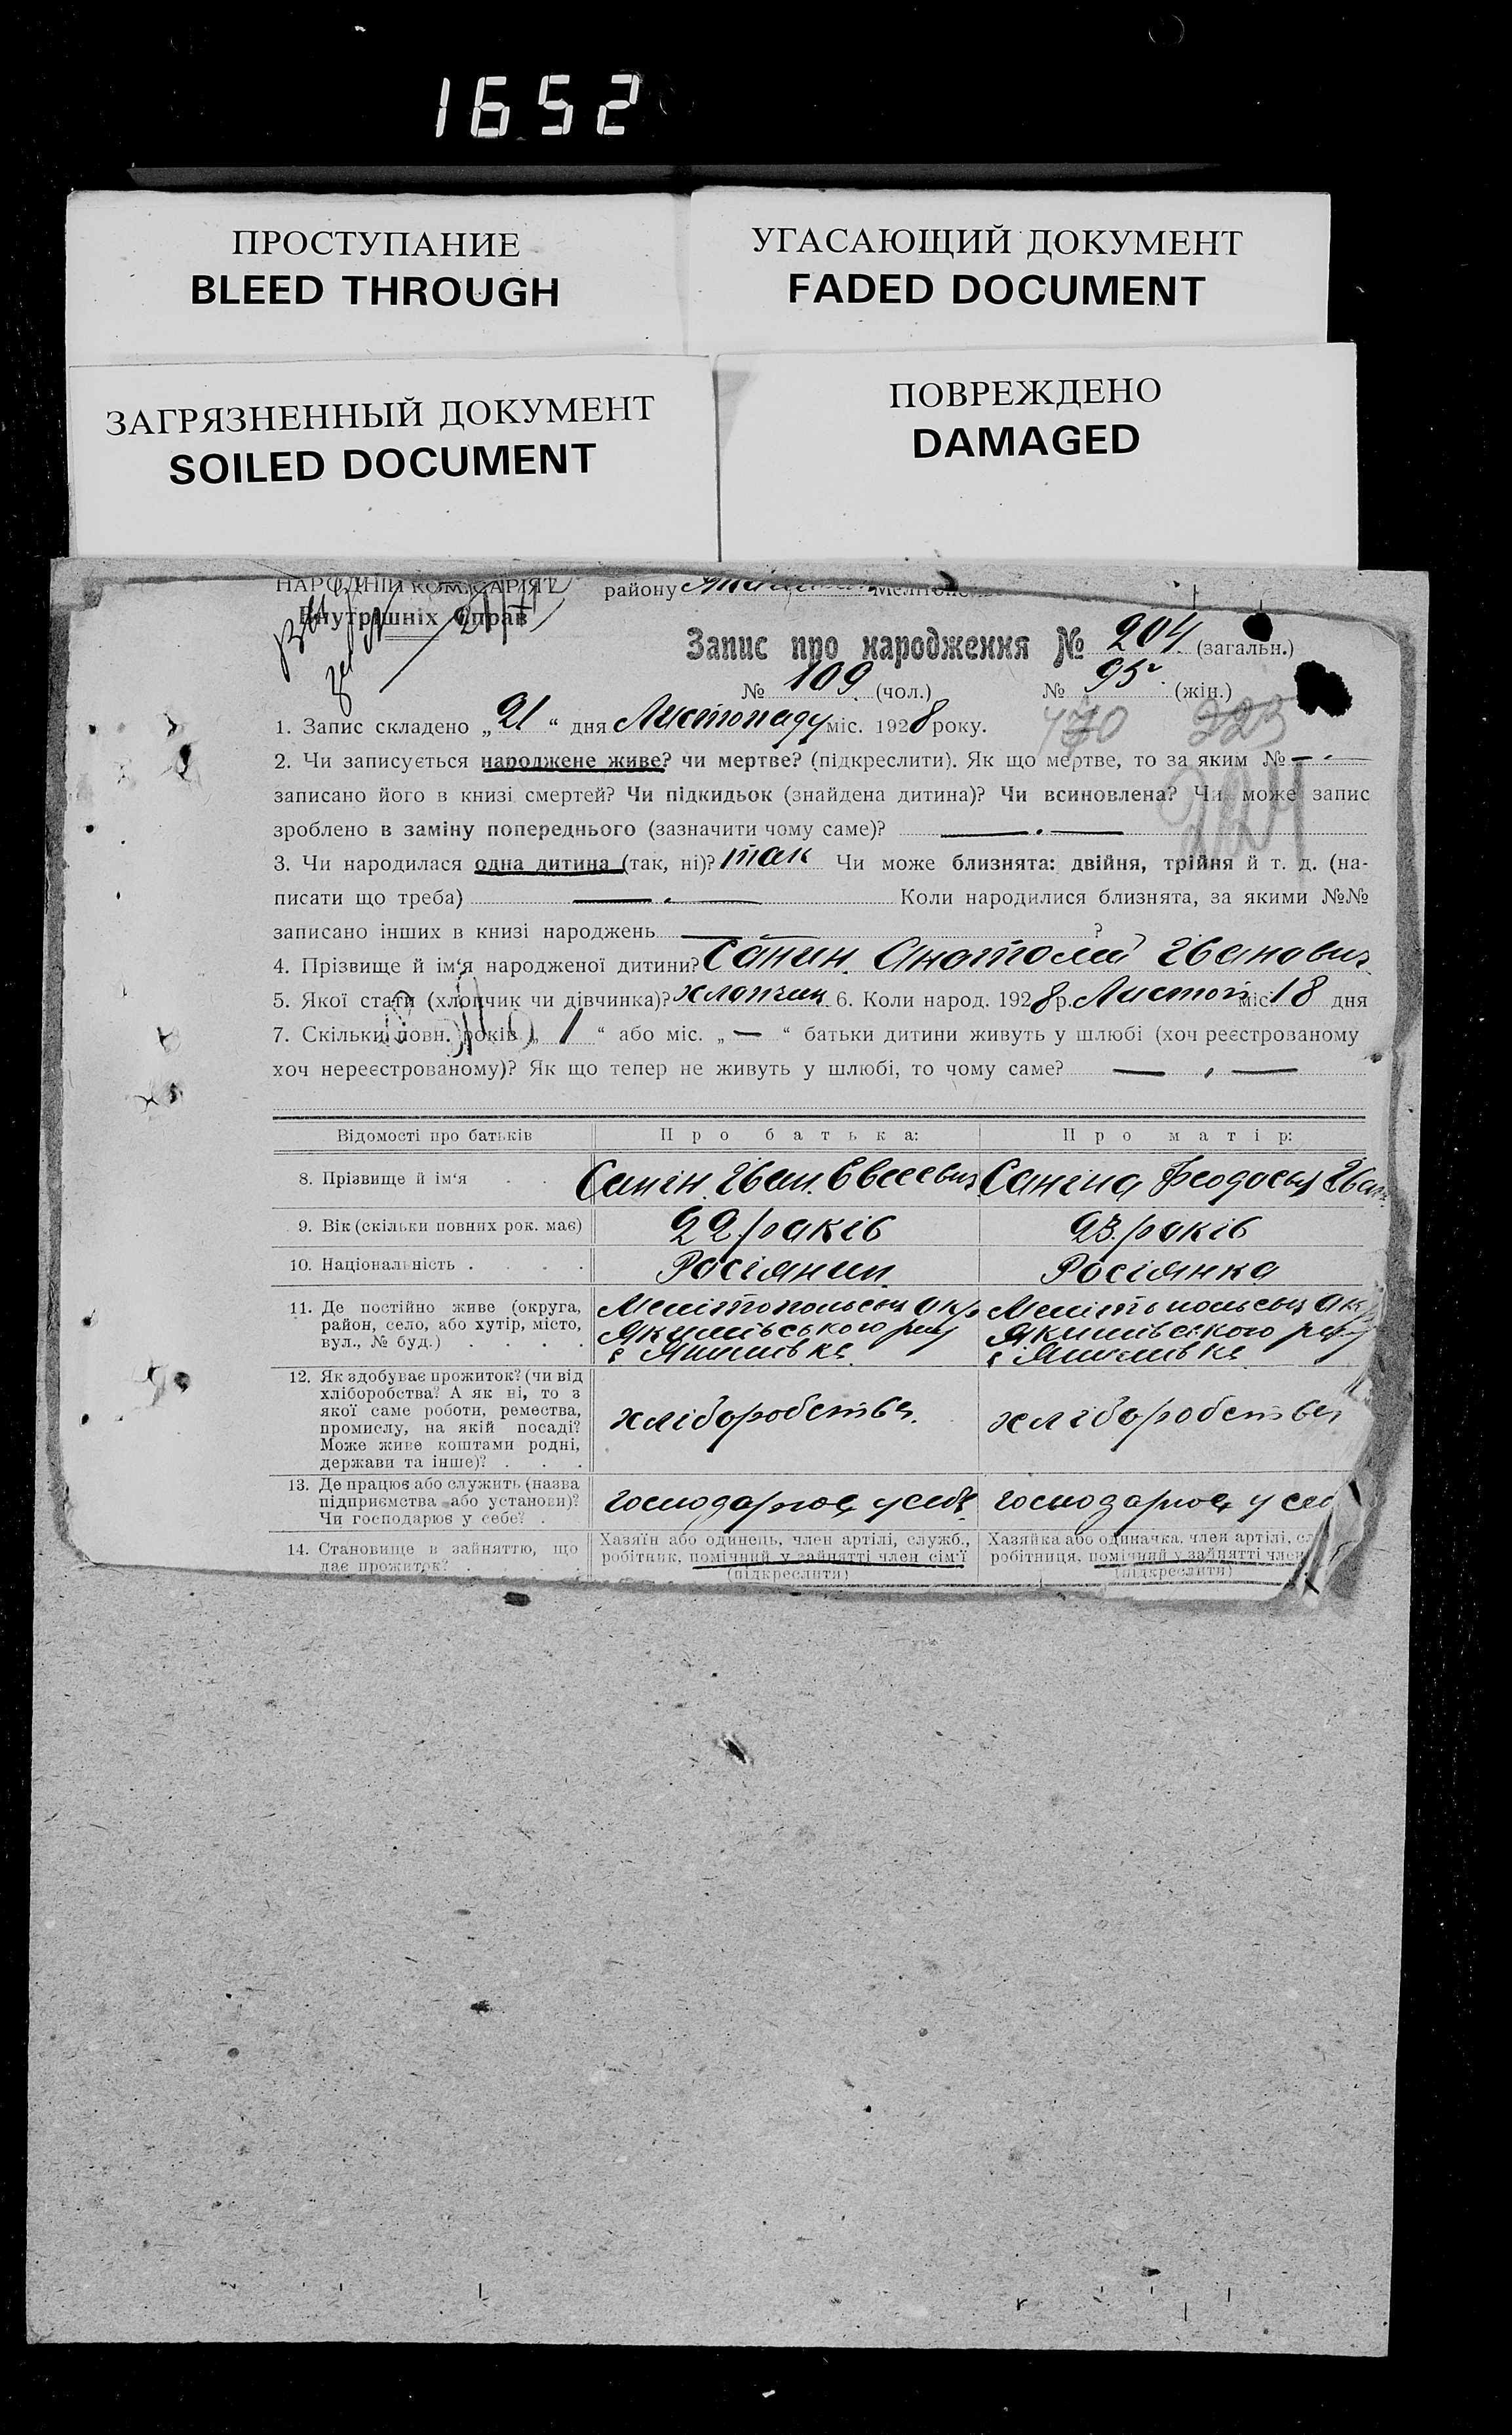 1652
ПРОСТУПАНИЕ
BLEED THROUGH
УГАСАЮЩИЙ ДОКУМЕНТ
FADED DOCUMENT
ЗАГРЯЗНЕННЫЙ ДОКУМЕНТ
SOILED DOCUMENT
ПОВРЕЖДЕНО
DAMAGED
НАРОДНІЙ КОМІСАРІЯТ району
Внутрішніх Справ
Запис про народження № 204 (загальн.)
№ 109 (чол.) № 95 (жін.)
1. Запис складено „ 21 “ дня Листопаду міс. 1928 року.
470 223
2. Чи записується народжене живе? чи мертве? (підкреслити). Як що мертве, то за яким № —
записано його в книзі смертей? Чи підкидьок (знайдена дитина)? Чи всиновлена? Чи може запис
зроблено в заміну попереднього (зазначити чому саме)? — . —
224
3. Чи народилася одна дитина (так, ні)? так Чи може близнята: двійня, трійня й т. д. (на-
писати що треба) — . — Коли народилися близнята, за якими №№
записано інших в книзі народжень — ?
4. Прізвище й ім‘я народженої дитини? Санин Анатолий Іванович
5. Якої стати (хлопчик чи дівчинка)? хлопчик 6. Коли народ. 1928 р. Листоп міс. 18 дня
7. Скільки повн. років „ 1 “ або міс. „ — “ батьки дитини живуть у шлюбі (хоч реєстрованому
хоч нереєстрованому)? Як що тепер не живуть у шлюбі, то чому саме? — , —
Відомості про батьків
Про батька:
Про матір:
8. Прізвище й ім‘я
Санін Іван Євсеевич
Саніна Феодосья Іван
9. Вік (скільки повних рок. має)
22 років
23 років
10. Національність
Росіянин
Росіянка
11. Де постійно живе (округа,
район, село, або хутір, місто,
вул., № буд.)
Мелітопольськ окр
Якимівського рай
с Якимівка
Мелітопольськ окр
Якимівського рай
с Якимівка
12. Як здобуває прожиток? (чи від
хліборобства? А як ні, то з
якої саме роботи, ремества,
промислу, на якій посаді?
Може живе коштами родні,
держави та інше)?
хліборобства
хліборобства
13. Де працює або служить (назва
підприємства або установи)?
Чи господарює у себе?
господарює у себе
господарює у себ
14. Становище в зайняттю, що
дає прожиток?
Хазяїн або одинець, член артілі, служб.,
робітник, помічний у зайнятті член сім‘ї
(підкреслити)
Хазяйка або одиначка, член артілі, сл
робітниця, помічний у зайнятті член
(підкреслити)